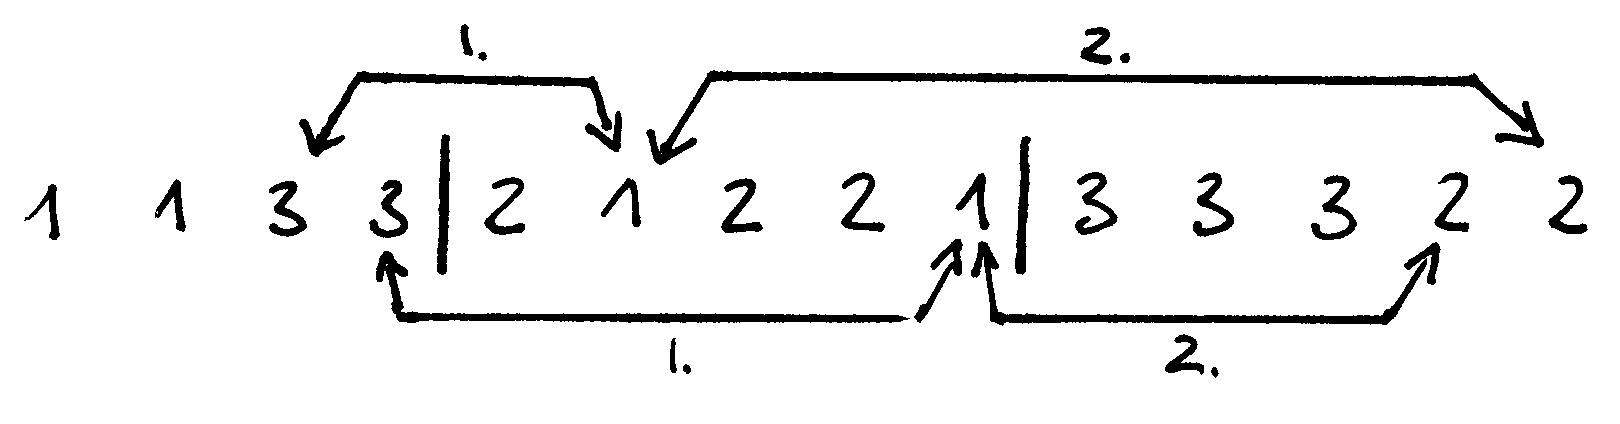 1. 2.
1 1 3 3 | 2 1 2 2 1 | 3 3 3 2 2
1. 2.